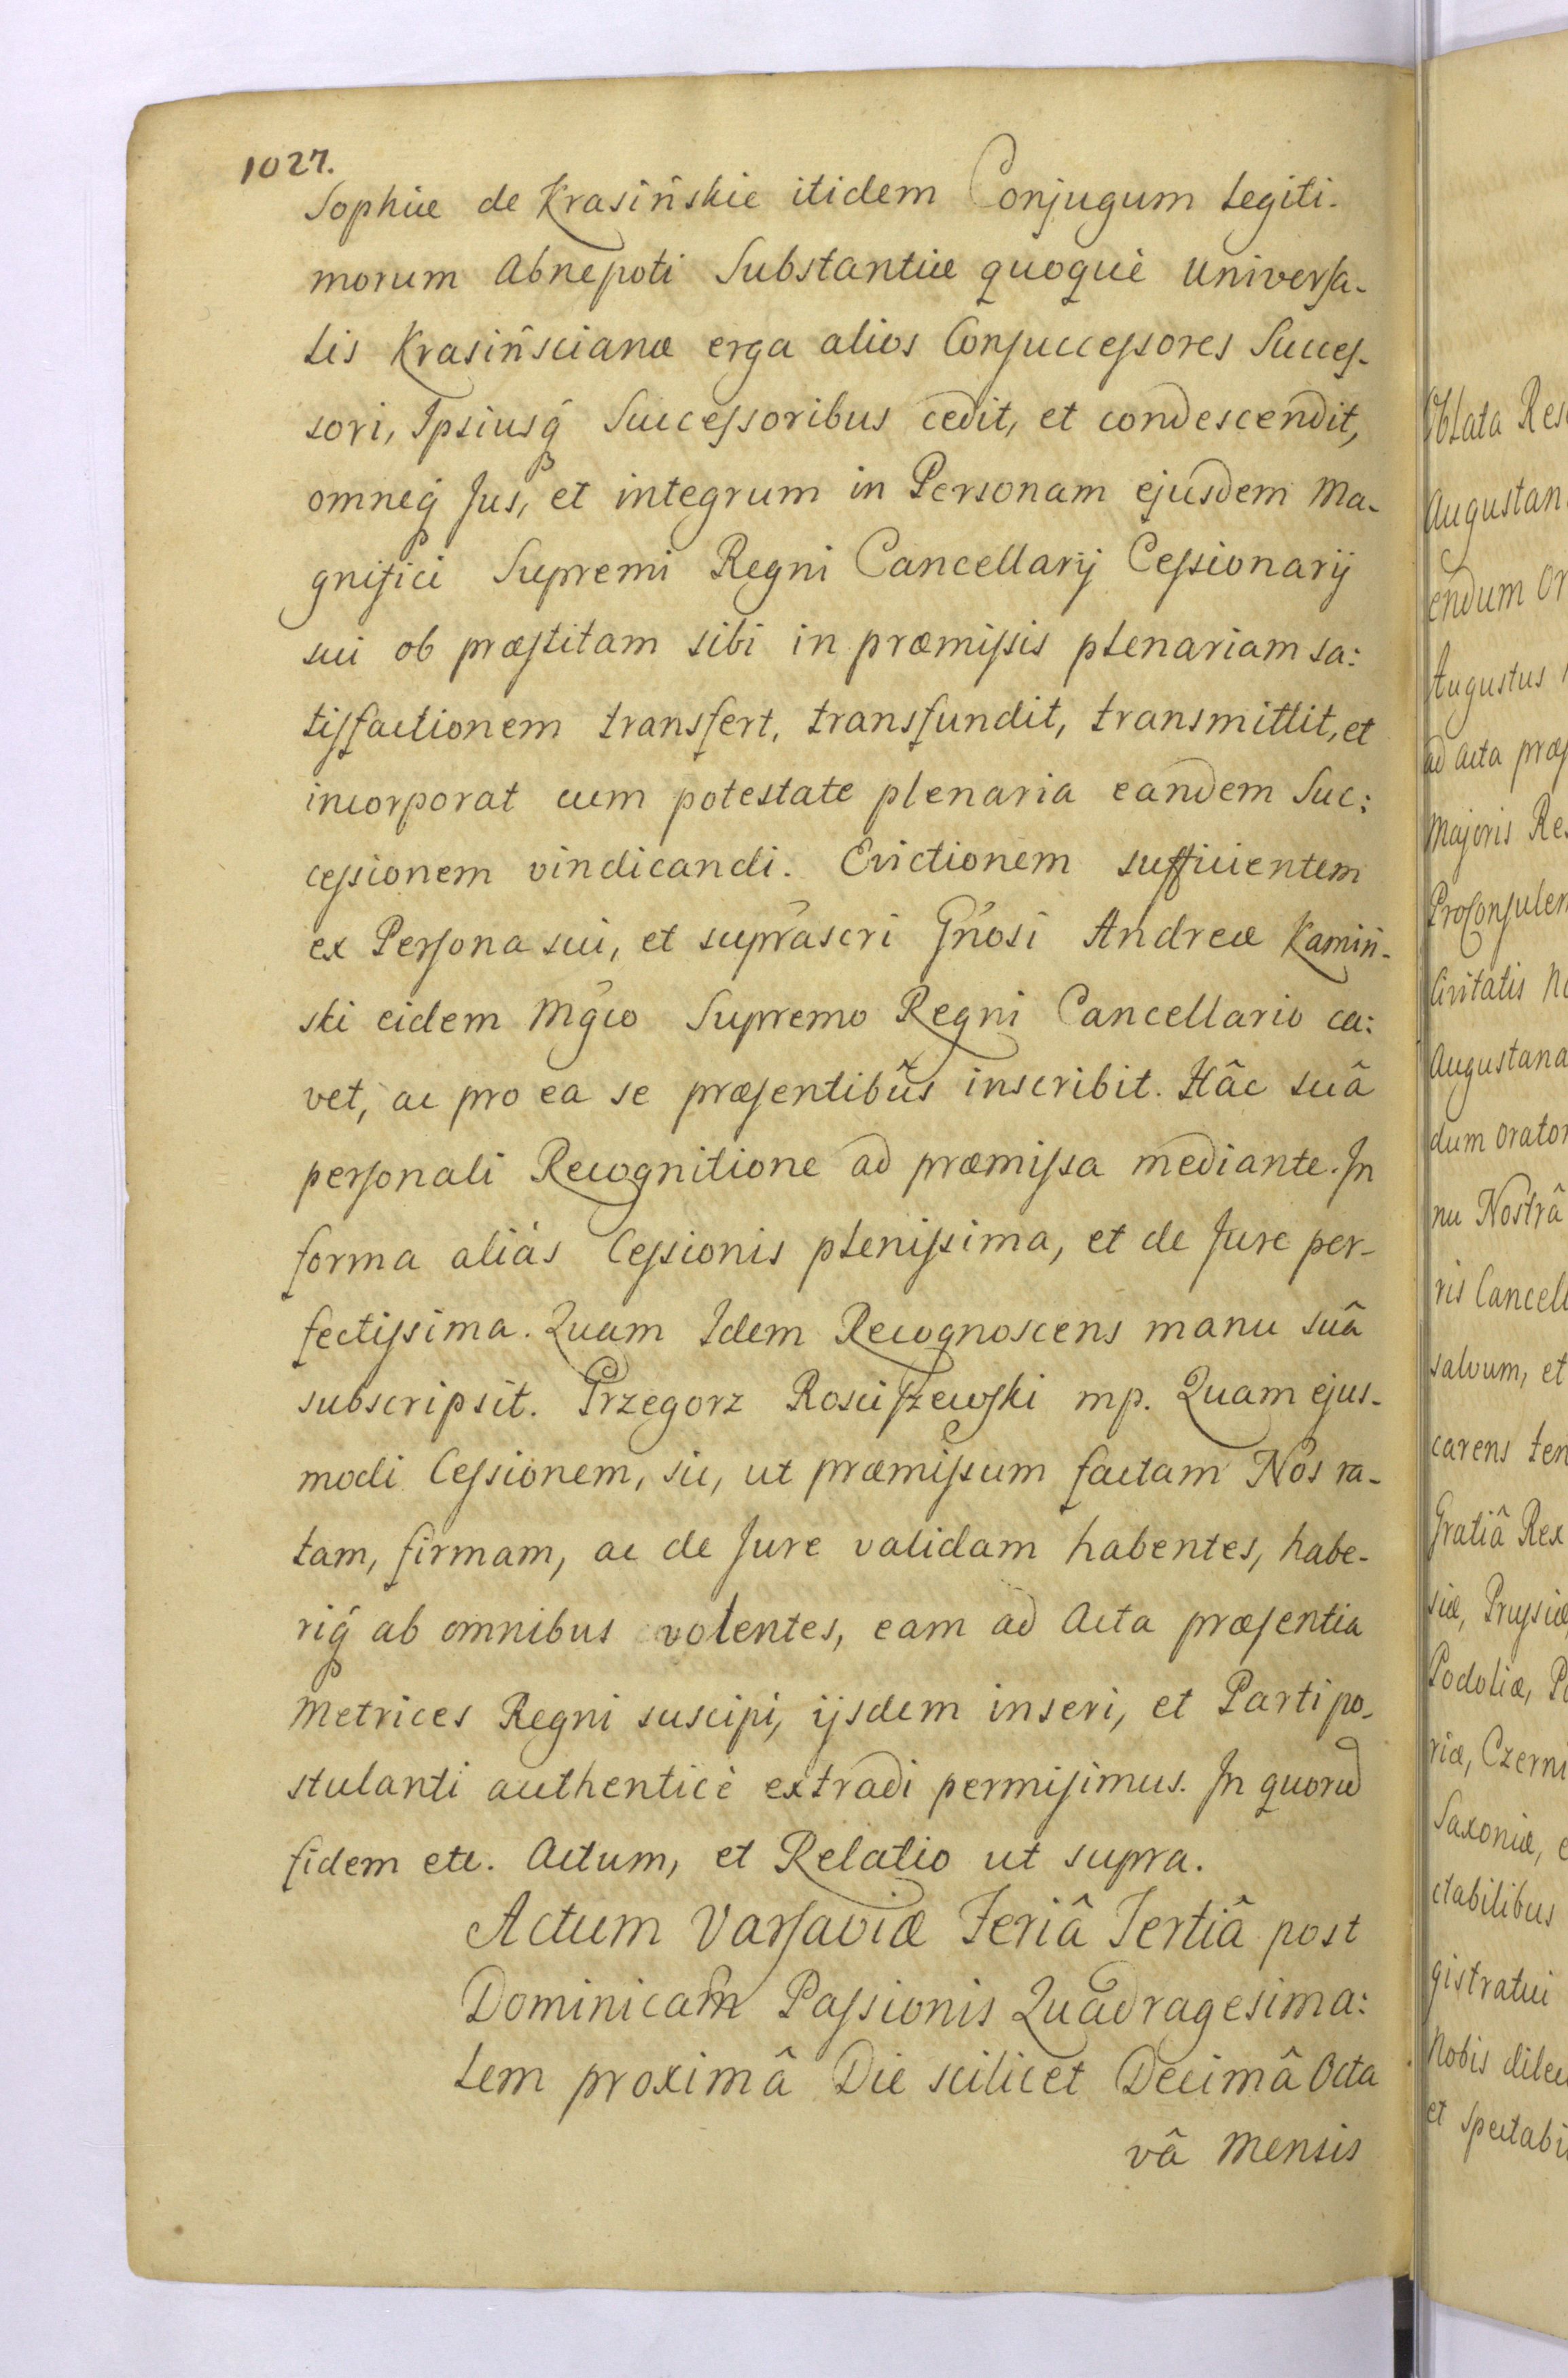 1027.
Sophiæ de Krasińskie itidem Conjugum Legiti-
morum Abnepoti Substantiæ quoquè Universa-
lis Krasińscianæ erga alios Consuccessores Succes-
sori, Ipsiusq́ Successoribus cedit, et condescendit,
omneq́ Jus, et integrum in Personam ejusdem Ma-
gnifici Supremi Regni Cancellarij Cessionarij
sui ob præstitam sibi in præmissis plenariam sa:
tisfactionem transfert, transfundit, transmittit, et
incorporat cum potestate plenaria eandem Suc:
cessionem vindicandi. Evictionem sufficientem
ex Persona sui, et suprascri Gńosi Andreæ Kamiń-
ski eidem Mgćo Supremo Regni Cancellario ca:
vet, ac pro ea se præsentibûs inscribit. Hâc suâ
personali Recognitione ad præmissa mediante. In
forma aliàs Cessionis plenissima, et de Jure per-
fectissima. Quam Idem Recognoscens manu suâ
subscripsit. Przegorz Rosciszewski mp. Quam ejus-
modi Cessionem, sic, ut præmissum factam Nos ra-
tam, firmam, ac de Jure validam habentes, habe-
riq́ ab omnibus volentes, eam ad Acta præsentia
Metrices Regni suscipi, ijsdem inseri, et Parti po-
stulanti authenticè extradi permisimus. In quorũ
fidem etc. Actum, et Relatio ut supra.
Actum Varsaviæ Feriâ Tertiâ post
Dominicam Passionis Quadragesima:
lem proximâ Die scilicet Decimâ Octa
vâ Mensis
Oblata Res
Augustan
endum Or
Augustus
ad Acta præs
Majoris Re
ProConsulem
Civitatis
Augustana
dum orator
nu Nostrâ
ris Cancell
salvum, et
carens
Gratiâ Rex
siæ, Prussiæ
Podoliæ,
riæ, Czerni
Saxoniæ,
ctabilibus
gistratui
Nobis dilec
et spectabi